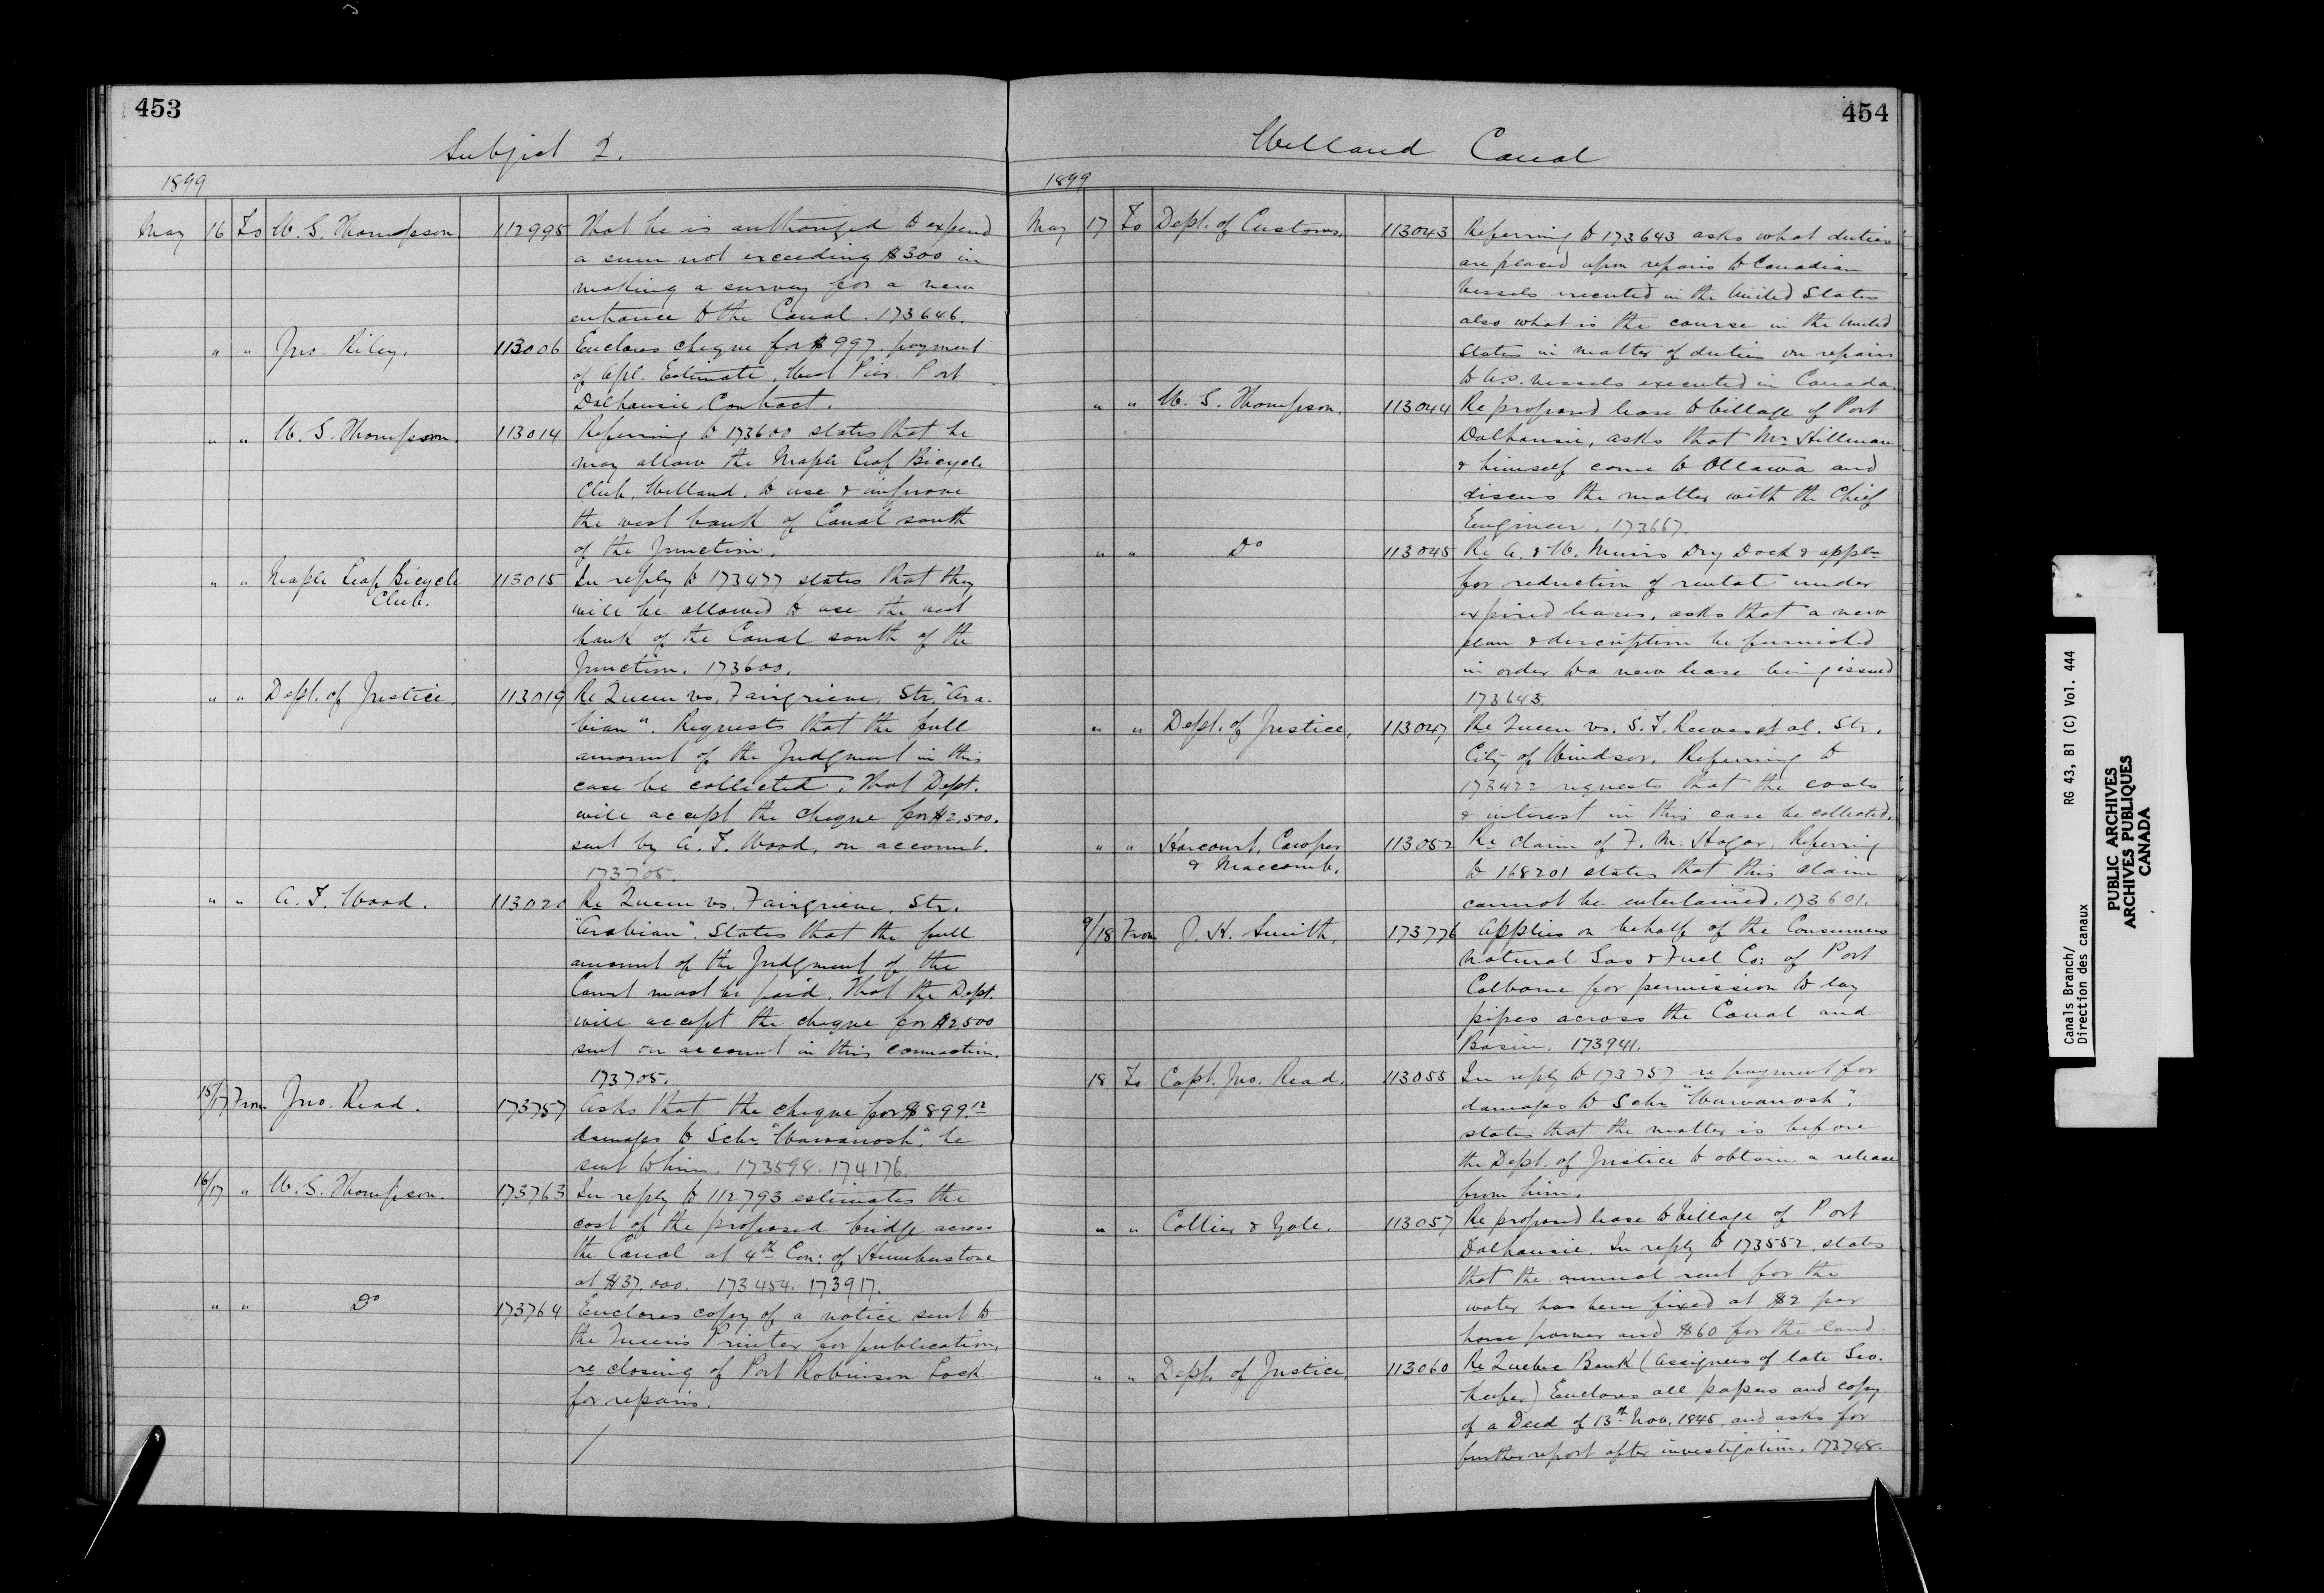 453
Subject 2.
1899
May 16 To W. S. Thompson. 112995 That he is authorized to expend
a sum not exceeding $300 in
making a survey for a new
entrance to the Canal. 173646.
" " Jno. Riley. 113006 Encloses cheque for $997. payment
of Apl. Estimate, West Pier. Port
Dalhousie Contract.
" " W. S. Thompson. 113014 Referring to 173600 states that he
may allow the Maple Leaf Bicycle
Club, Welland, to use & improve
the west bank of Canal south
of the Junction.
" " Maple Leaf Bicycle 113015 In reply to 173477 states that they
Club. will be allowed to use the west
bank of the Canal south of the
Junction. 173600.
" " Dept. of Justice. 113019 Re Queen vs. Fairgrieve, Str. "Ara-
bian". Requests that the full
amount of the Judgment in this
case be collected. That Dept.
will accept the cheque for $2,500.
sent by A. F. Wood, on account.
173705.
" " A. F. Wood. 113020 Re Queen vs. Fairgrieve, Str.
"Arabian". States that the full
amount of the Judgment of the
Court must be paid. That the Dept.
will accept the cheque for $2500
sent on account in this connection.
173705.
15/17 From Jno. Read. 173757 Asks that the cheque for $899.12
damages to Schr "Wawanosh", be
sent to him. 173598. 174176.
16/17 " W. S. Thompson. 173763 In reply to 112793 estimates the
cost of the proposed bridge across
the Canal at 4th Con: of Humberstone
at $37,000. 173454. 173917.
" " Do 173764 Encloses copy of a notice sent to
the Queen's Printer for publication,
re closing of Port Robinson Lock
for repairs.
/
454
Welland Canal
1899
May 17 To Dept. of Customs. 113043 Referring to 173643 asks what duties
are placed upon repairs to Canadian
vessels executed in the United States
also what is the course in the United
States in matter of duties on repairs
to U.S. vessels executed in Canada.
" " W. S. Thompson. 113044 Re proposed lease to Village of Port
Dalhousie, asks that Mr Hillman
& himself come to Ottawa and
discuss the matter with the Chief
Engineer. 173667.
" " Do 113045 Re A. & W. Muirs Dry Dock & appln
for reduction of rental under
expired leases, asks that a new
plan & description be furnished
in order to a new lease being issued
173643.
" " Dept. of Justice, 113047 Re Queen vs. S. F. Reeves et al. Str.
City of Windsor. Referring to
173422 requests that the costs
& interest in this case be collected.
" " Harcourt, Cowper 113052 Re claim of F. M. Hagar. Referring
& Maccomb. to 168201 states that this claim
cannot be entertained. 173601.
9/18 From J. H. Smith, 173776 Applies on behalf of the Consumers
Natural Gas & Fuel Co: of Port
Colborne for permission to lay
pipes across the Canal and
Basin. 173941.
18 To Capt. Jno. Read. 113055 In reply to 173757 re payment for
damages to Schr "Wawanosh".
states that the matter is before
the Dept. of Justice to obtain a release
from him.
" " Collier & Yale. 113057 Re proposed lease to Village of Port
Dalhousie. In reply to 173552, states
that the annual rent for the
water has been fixed at $2 per
horse power and $60 for the land.
" " Dept. of Justice, 113060 Re Quebec Bank (Assignees of late Geo.
Keefer) Encloses all papers and copy
of a Deed of 13th Nov. 1845, and asks for
further report after investigation. 173748.
Canals Branch/ RG 43, B1 (C) Vol. 444
Direction des canaux
PUBLIC ARCHIVES
ARCHIVES PUBLIQUES
CANADA